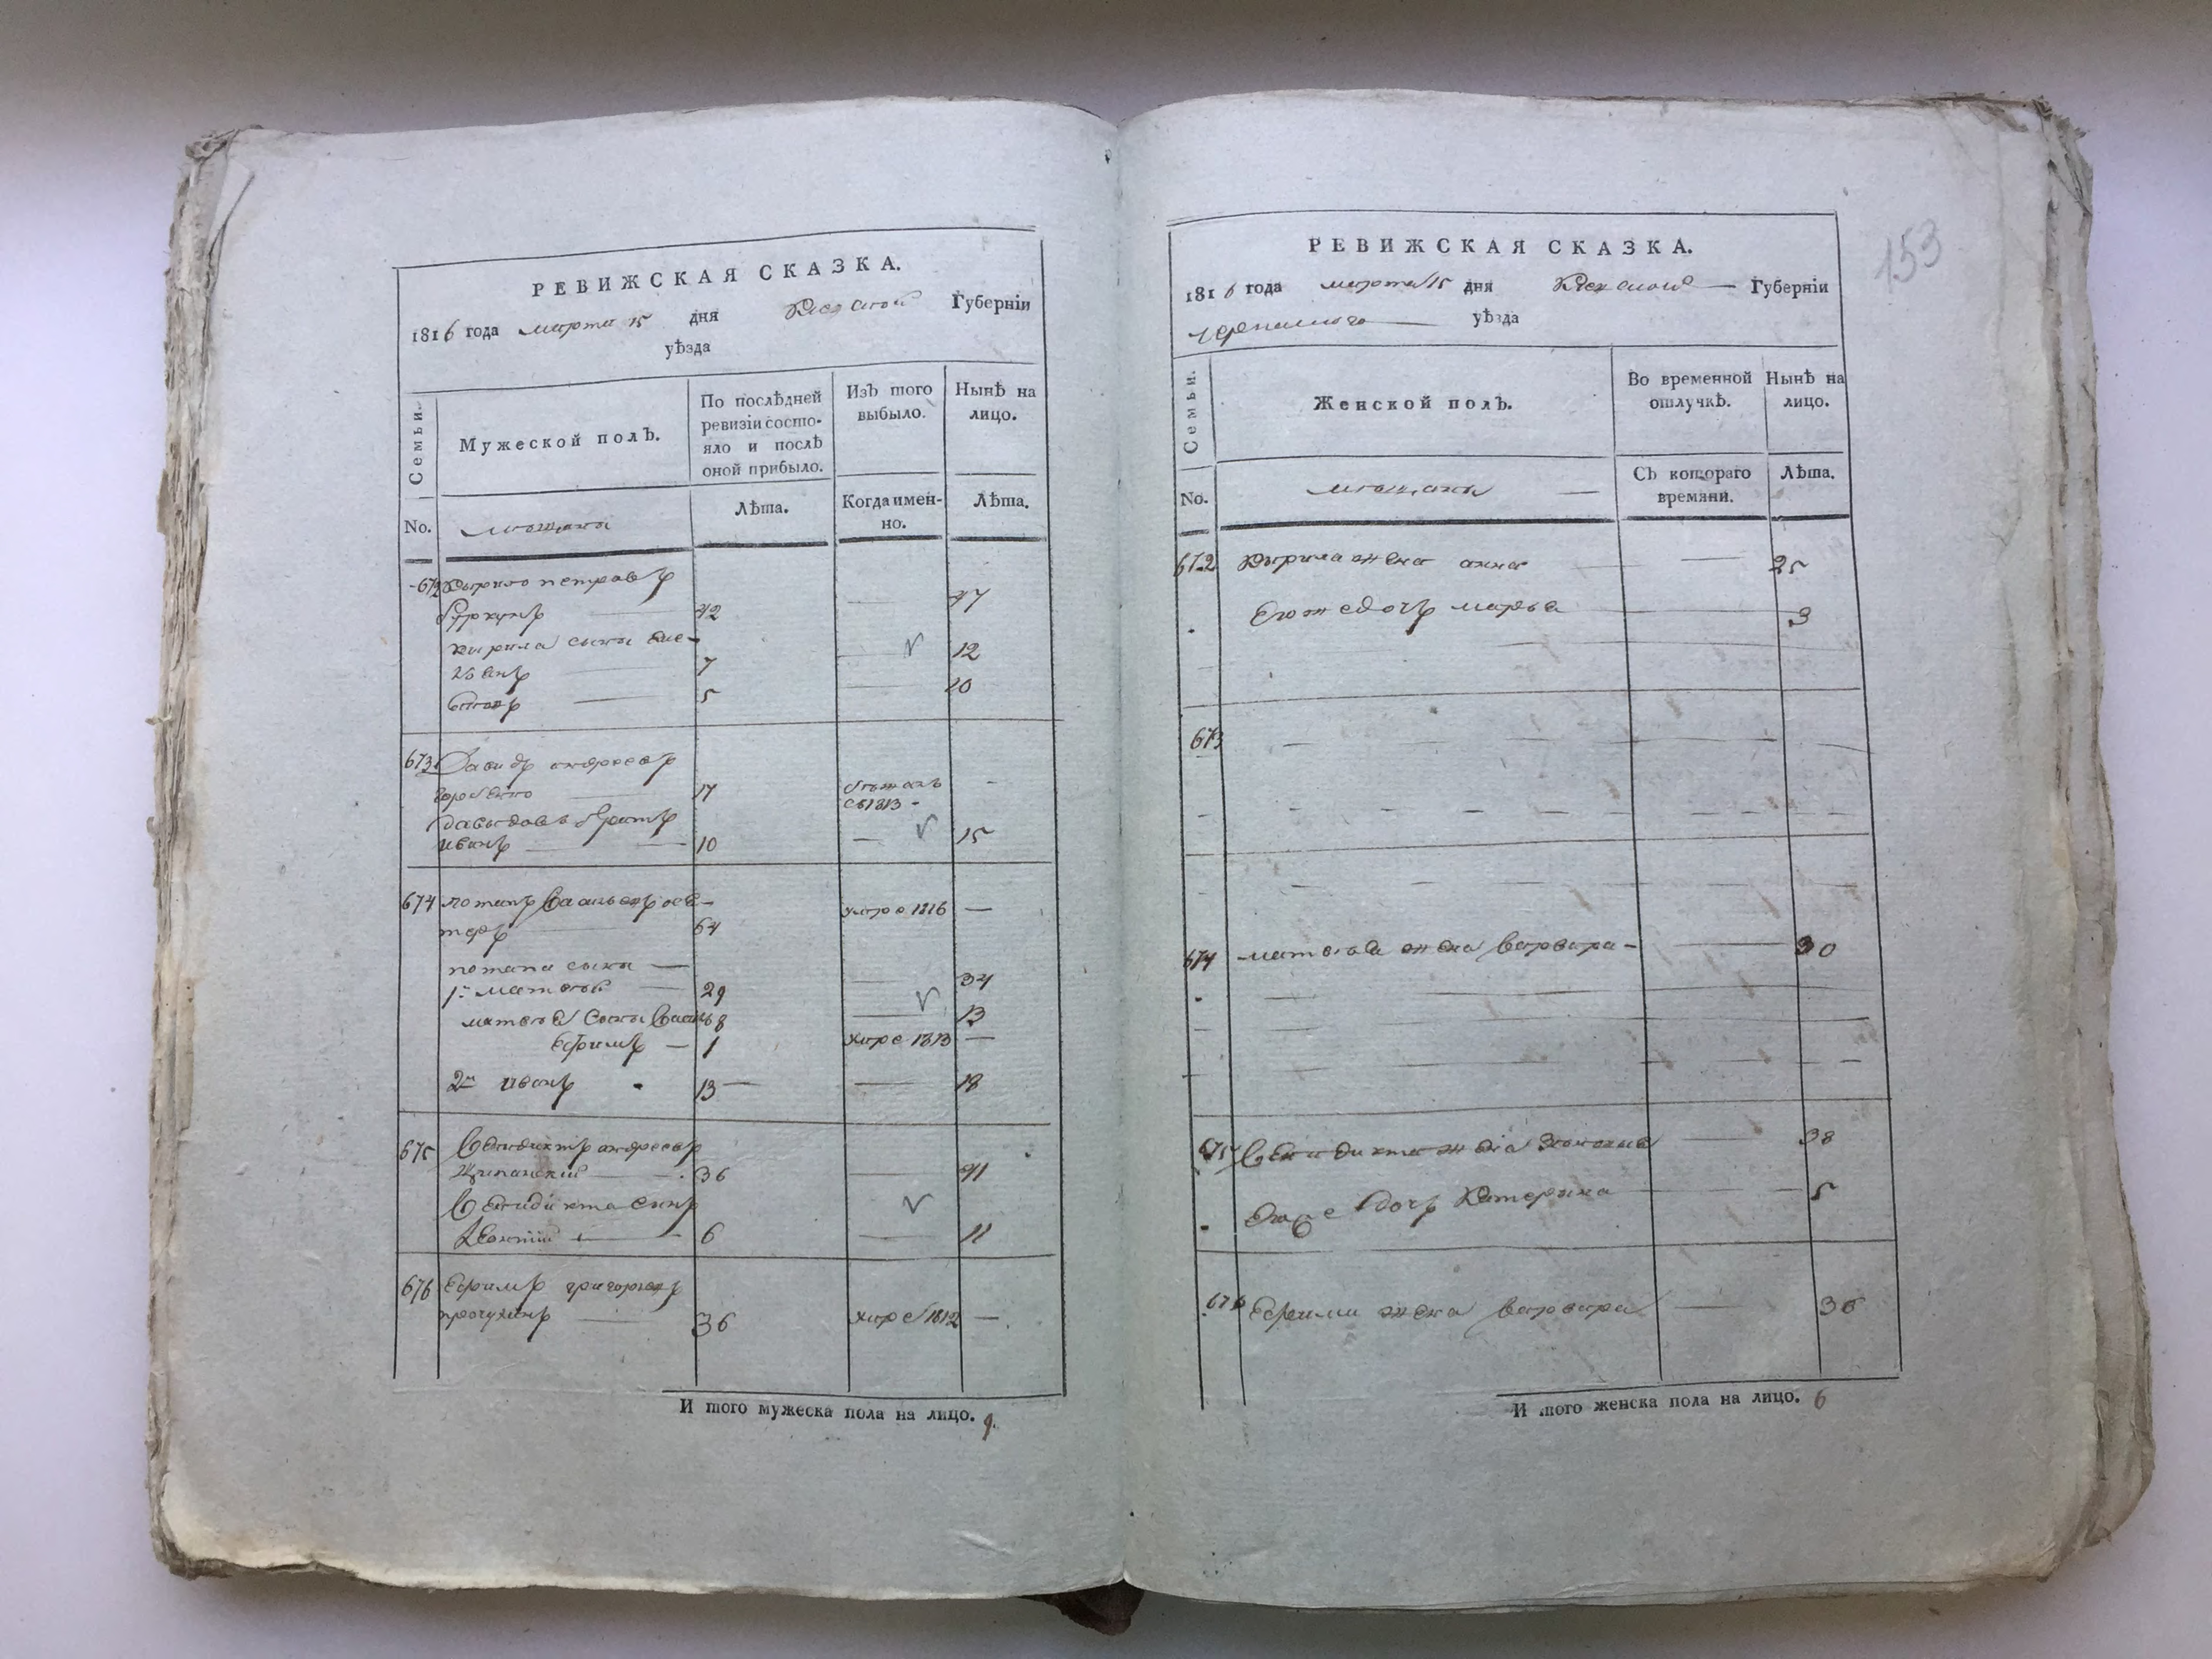 РЕВИЖСКАЯ СКАЗКА.
1816 года марта 15 дня Киевской Губерніи
уѣзда
Семьи.
Мужеской полъ.
По послѣдней ревизіи состояло и послѣ оной прибыло.
Изъ того выбыло.
Нынѣ на лицо.
No.
мещане
Лѣта.
Когда именно.
Лѣта.
672 Кирило петровъ
42 — 47
кирила сыны
7 — 12
5 — 10
673 Давидъ андреевъ
17 бежалъ с 1813 -
давыдовъ братъ
иванъ — 10 — 15
674 потапъ Васильевъ
64 умре 1816 —
потапа сыны —
1й матвей — 29 — 34
матвея сыны Василь 8 — 13
Ефимъ — 1 умре 1813 —
2й иванъ 13 — — 18
675 Венидиктъ андреевъ
36 — 41
Венидикта сынъ
Леонтий — 6 — 11
676 Ефимъ григорьевъ
36 умре 1812 —
И того мужеска пола на лицо. 9.
153
РЕВИЖСКАЯ СКАЗКА.
1816 года марта 15 дня Киевской — Губерніи
уѣзда
Семьи.
Женской полъ.
Во временной отлучкѣ.
Нынѣ на лицо.
No.
мещаны —
Съ котораго времяни.
Лѣта.
672 Кирила жена анна — 25
Его же дочь марья — 3
673
674 матвея жена варвара — 30
675 Венидикта жена — 38
Его же дочь Катерина — 5
676 Ефима жена варвара — 36
И того женска пола на лицо. 6